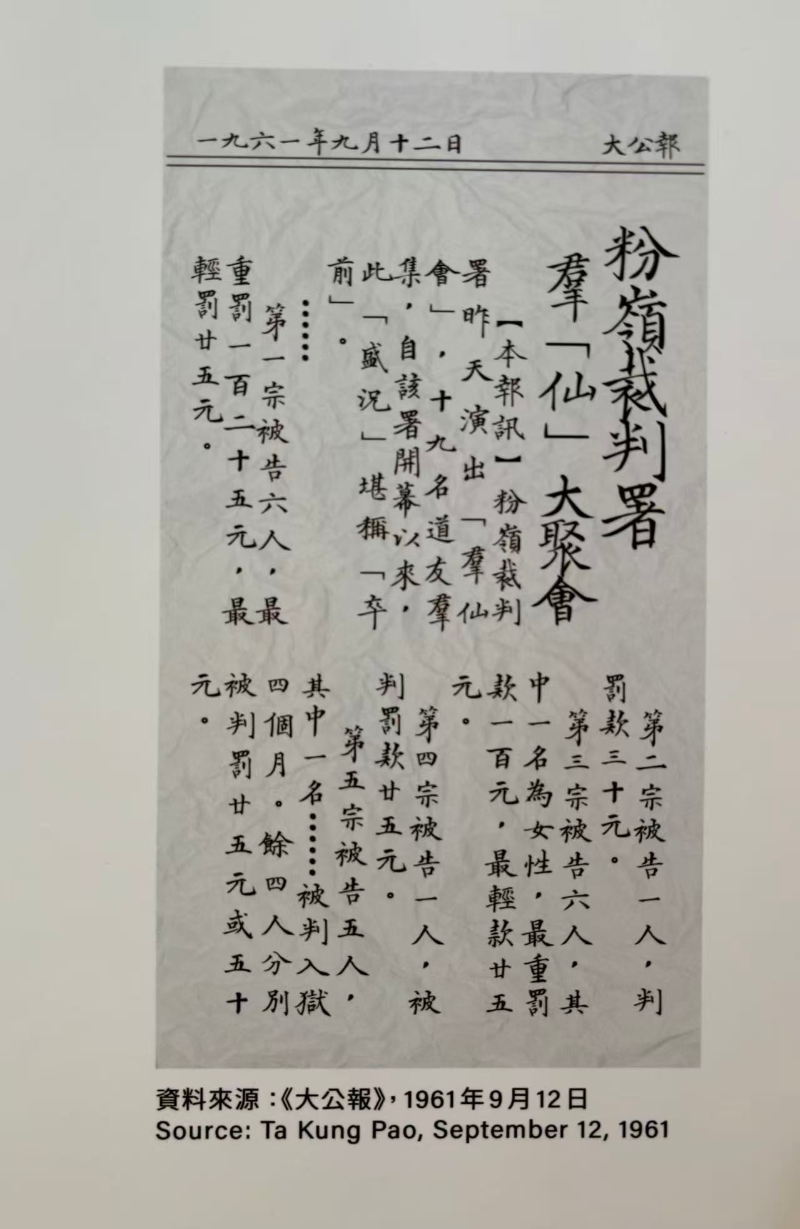 一九六一年九月十二日 大公報
粉嶺裁判署
羣「仙」大聚會
【本報訊】粉嶺裁判
署昨天演出「羣仙
會」，十九名道友羣
集，自該署開幕以來，
此「盛況」堪稱「卒
前」。
……
第一宗被告六人，最
重罰一百二十五元，最
輕罰廿五元。
第二宗被告一人，判
罰款三十元。
第三宗被告六人，其
中一名為女性，最重罰
款一百元，最輕款廿五
元。
第四宗被告一人，被
判罰款廿五元。
第五宗被告五人，
其中一名……被判入獄
四個月。餘四人分別
被判罰廿五元或五十
元。
資料來源：《大公報》，1961年9月12日
Source: Ta Kung Pao, September 12, 1961